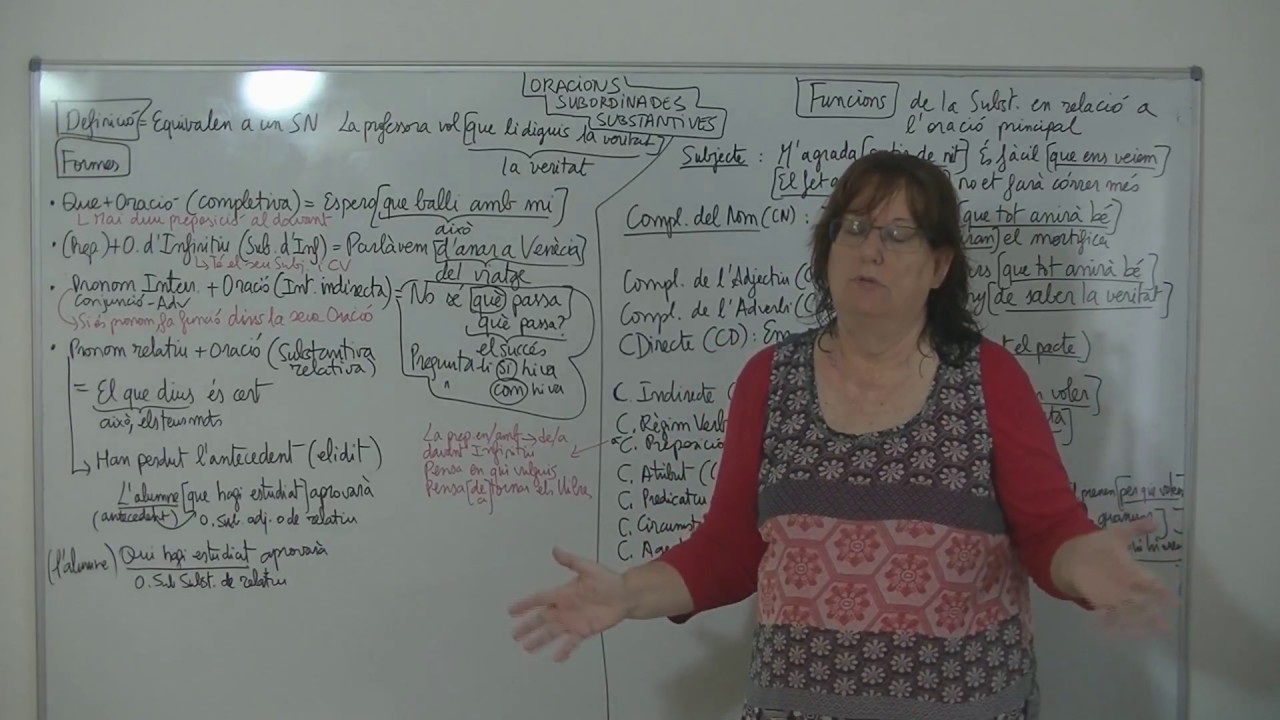 ORACIONS
SUBORDINADES
SUBSTANTIVES
Definició = Equivalen a un SN La professora vol [que li diguis la veritat]
la veritat
Formes
• Que + Oració (completiva) = Espero [que balli amb mi]
això
Mai duu preposició al davant
• (Prep) + O. d'Infinitiu (Sub. d'Inf) = Parlàvem [d'anar a Venècia]
del viatge
Té el seu Subj. i CV
• Pronom Inter. + Oració (Int. indirecta) = No sé [què passa]
Conjunció - Adv
Què passa?
Si és pronom fa funció dins la seva Oració
el succés
Pregunta-li si hi va
com hi va
• Pronom relatiu + Oració (Substantiva
relativa)
= El que dius és cert
això, els teus mots
Han perdut l'antecedent (elidit)
L'alumne [que hagi estudiat] aprovarà
(antecedent) O. Sub adj. o de relatiu
(l'alumne) Qui hagi estudiat aprovarà
O. Sub Subst. de relatiu
La prep. en/amb → de/a
davant Infinitiu
Pensa en qui vulguis
Pensa [de] tornar els llibres
(a)
Funcions de la Subst. en relació a
l'oració principal
Subjecte : M'agrada [ de nit] És fàcil [que ens veiem]
[El fet no et farà córrer més
Compl. del Nom (CN) : que tot anirà bé]
el mortifica
Compl. de l'Adjectiu ( [que tot anirà bé
Compl. de l'Adverbi ( [de saber la veritat]
C Directe (CD) : el pacte)
C. Indirecte voler]
C. Règim Verb
C. Preposició
C. Atribut (
C. Predicatiu prenen [per que volen
C. Circumst
C. Agent